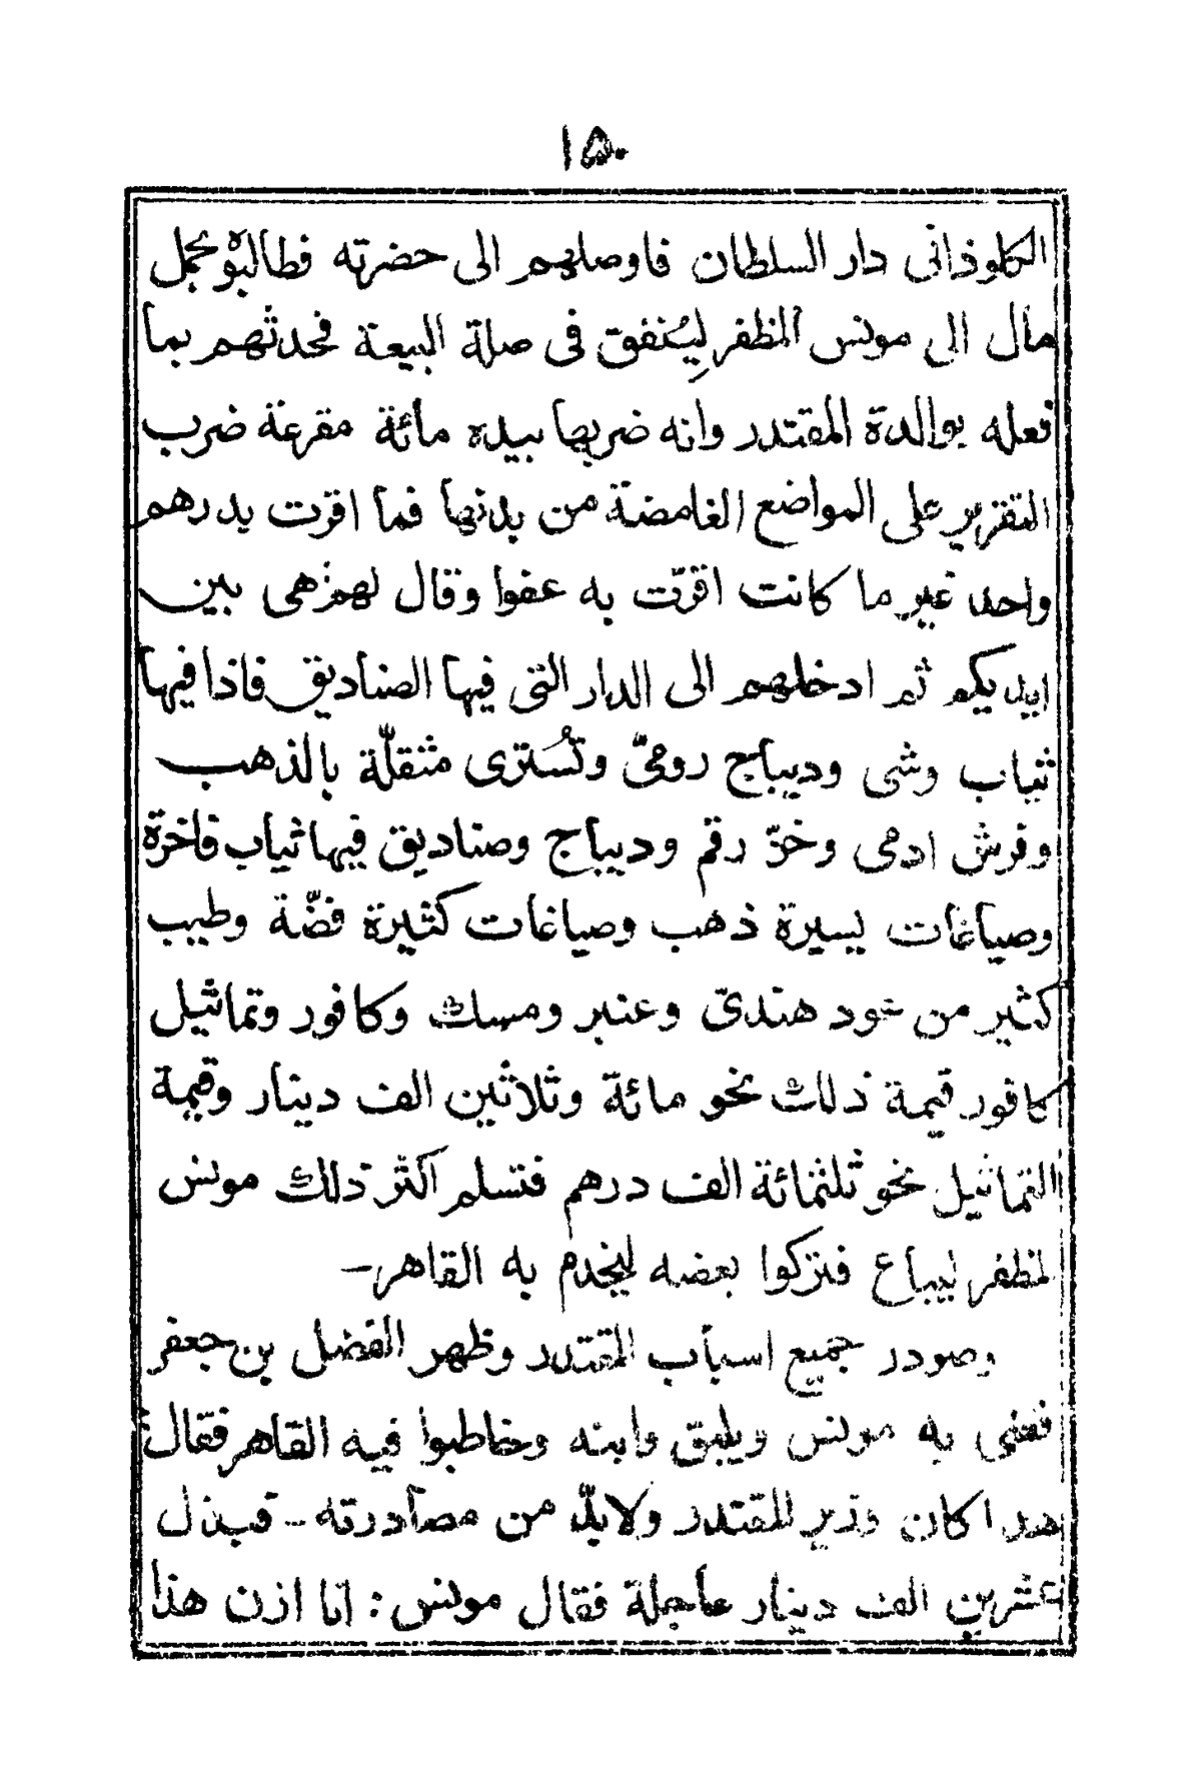 ۱۵۰
الكلوذانى دار السلطان فاوصلهم الى حضرته فطالبوه بحمل
مال الى مونس المظفر ليُنفق فى صلة البيعة فحدثهم بما
فعله بوالدة المقتدر وانه ضربها بيده مائة مقرعة ضرب
التقرير على المواضع الغامضة من بدنها فما اقرت بدرهم
واحد غير ما كانت اقرّت به عفوا وقال لهم هى بين
ايديكم ثم ادخلهم الى الدار التى فيها الصناديق فاذا فيها
ثياب وشى وديباج رومىّ وتُسترى مثقلّة بالذهب
وفرش ادمى وخزّ رقم وديباج وصناديق فيها ثياب فاخرة
وصياغات يسيرة ذهب وصياغات كثيرة فضّة وطيب
كثير من عود هندىّ وعنبر ومسك وكافور وتماثيل
كافور قيمة ذلك نحو مائة وثلاثين الف دينار وقيمة
التماثيل نحو ثلثمائة الف درهم فتسلم اكثر ذلك مونس
لمظفر ليباع فتركوا بعضه ليخدم به القاهر-
وصودر جميع اسباب المقتدر وظهر الفضل بن جعفر
فعنى به مونس ويلبق وابنه وخاطبوا فيه القاهر فقال:
هذا كان وزير للمقتدر ولابدّ من مصادرته - فبذل
عشرين الف دينار عاجلة فقال مونس: انا ازن هذا